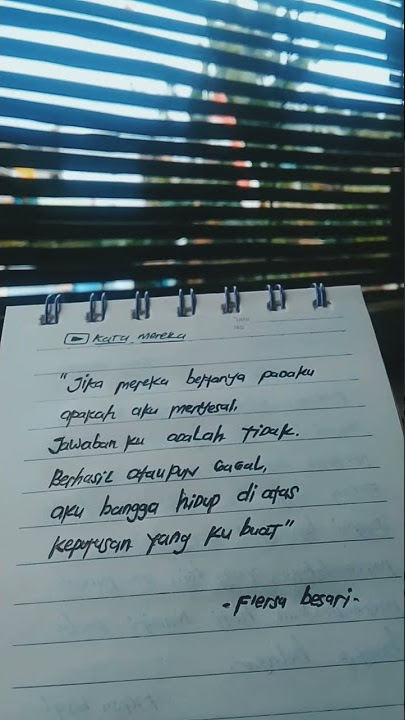 Kata mereka
"Jika mereka bertanya padaku
apakah aku menyesal,
Jawaban ku adalah tidak.
Berhasil ataupun Gagal,
aku bangga hidup di atas
keputusan yang ku buat"
- Fiersa besari -